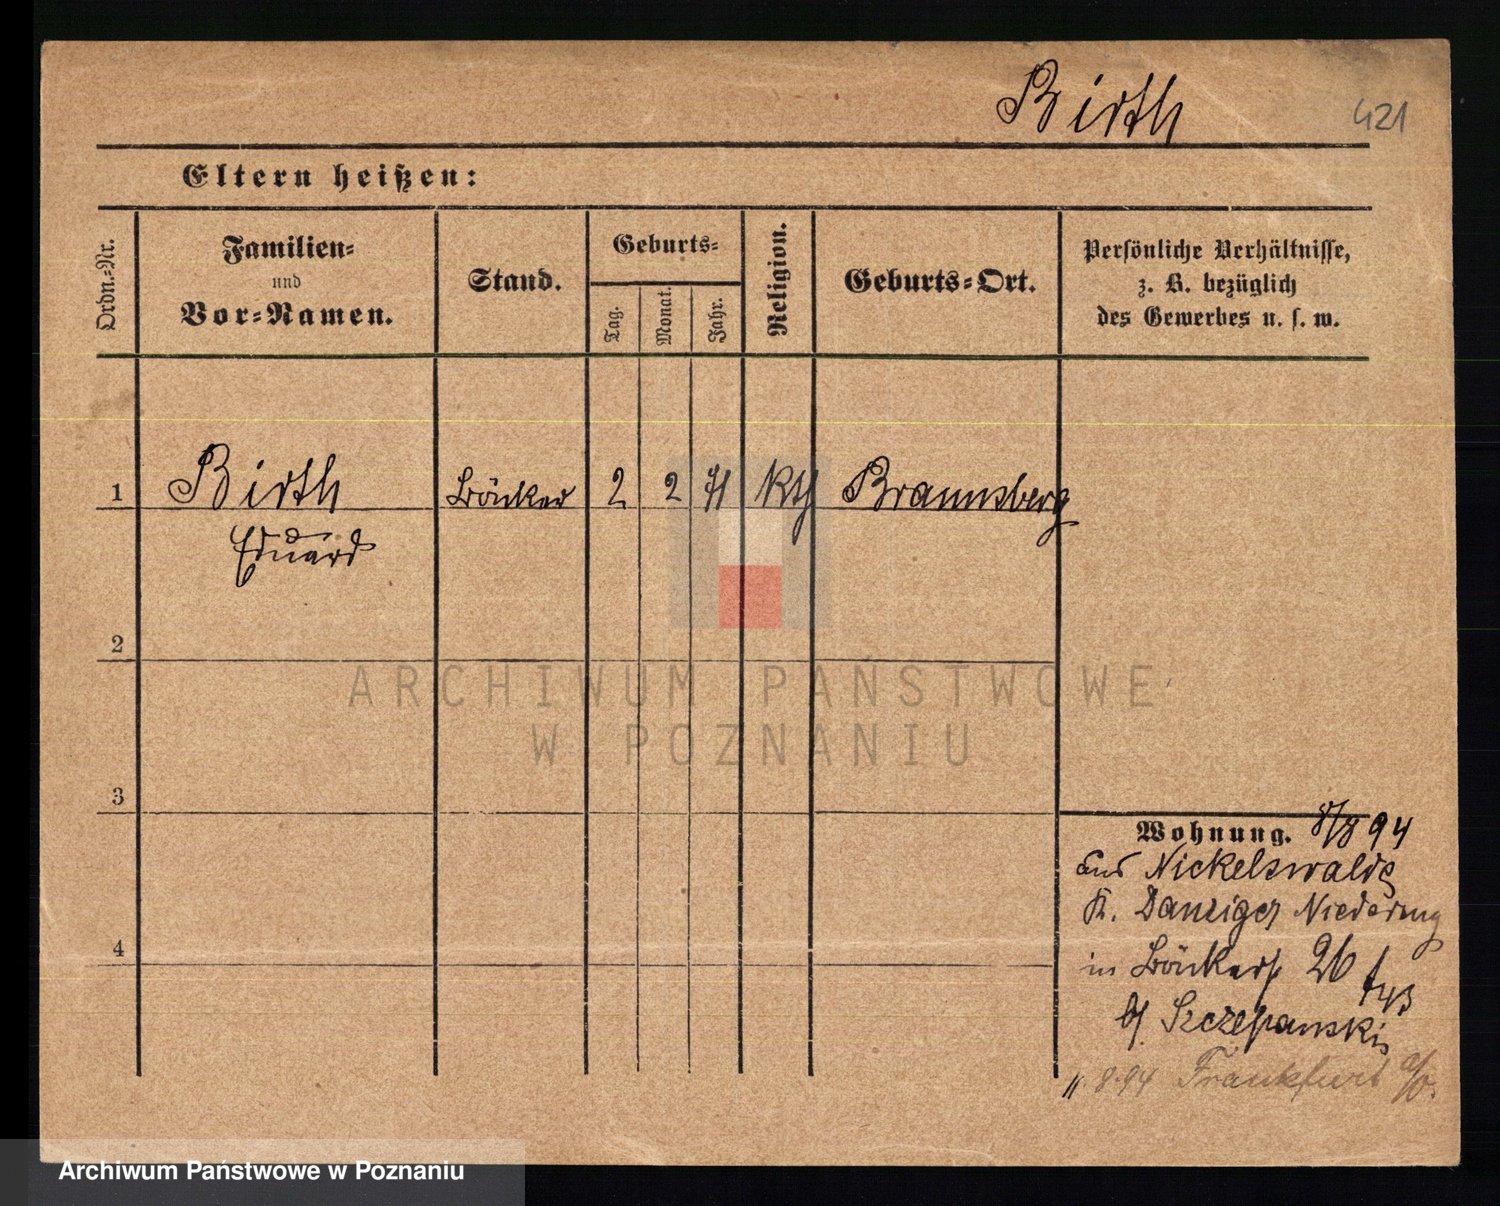 Birth
421
Eltern heißen:
Ordn.-Nr.
Familien-
und
Vor-Namen.
Stand.
Geburts-
Tag.
Monat.
Jahr.
Religion.
Geburts-Ort.
Persönliche Verhältnisse,
z. B. bezüglich
des Gewerbes u. s. w.
1 Birth Böttcher 2 2 71 kth Braunsberg
Eduard
2
3
4
Wohnung. 8/8 94
aus Nickelswalde
K. Danziger Niederung
in 26
bj. Szczepanski
11.8.94 Frankfurt a/O.
ARCHIWUM PAŃSTWOWE
W POZNANIU
Archiwum Państwowe w Poznaniu